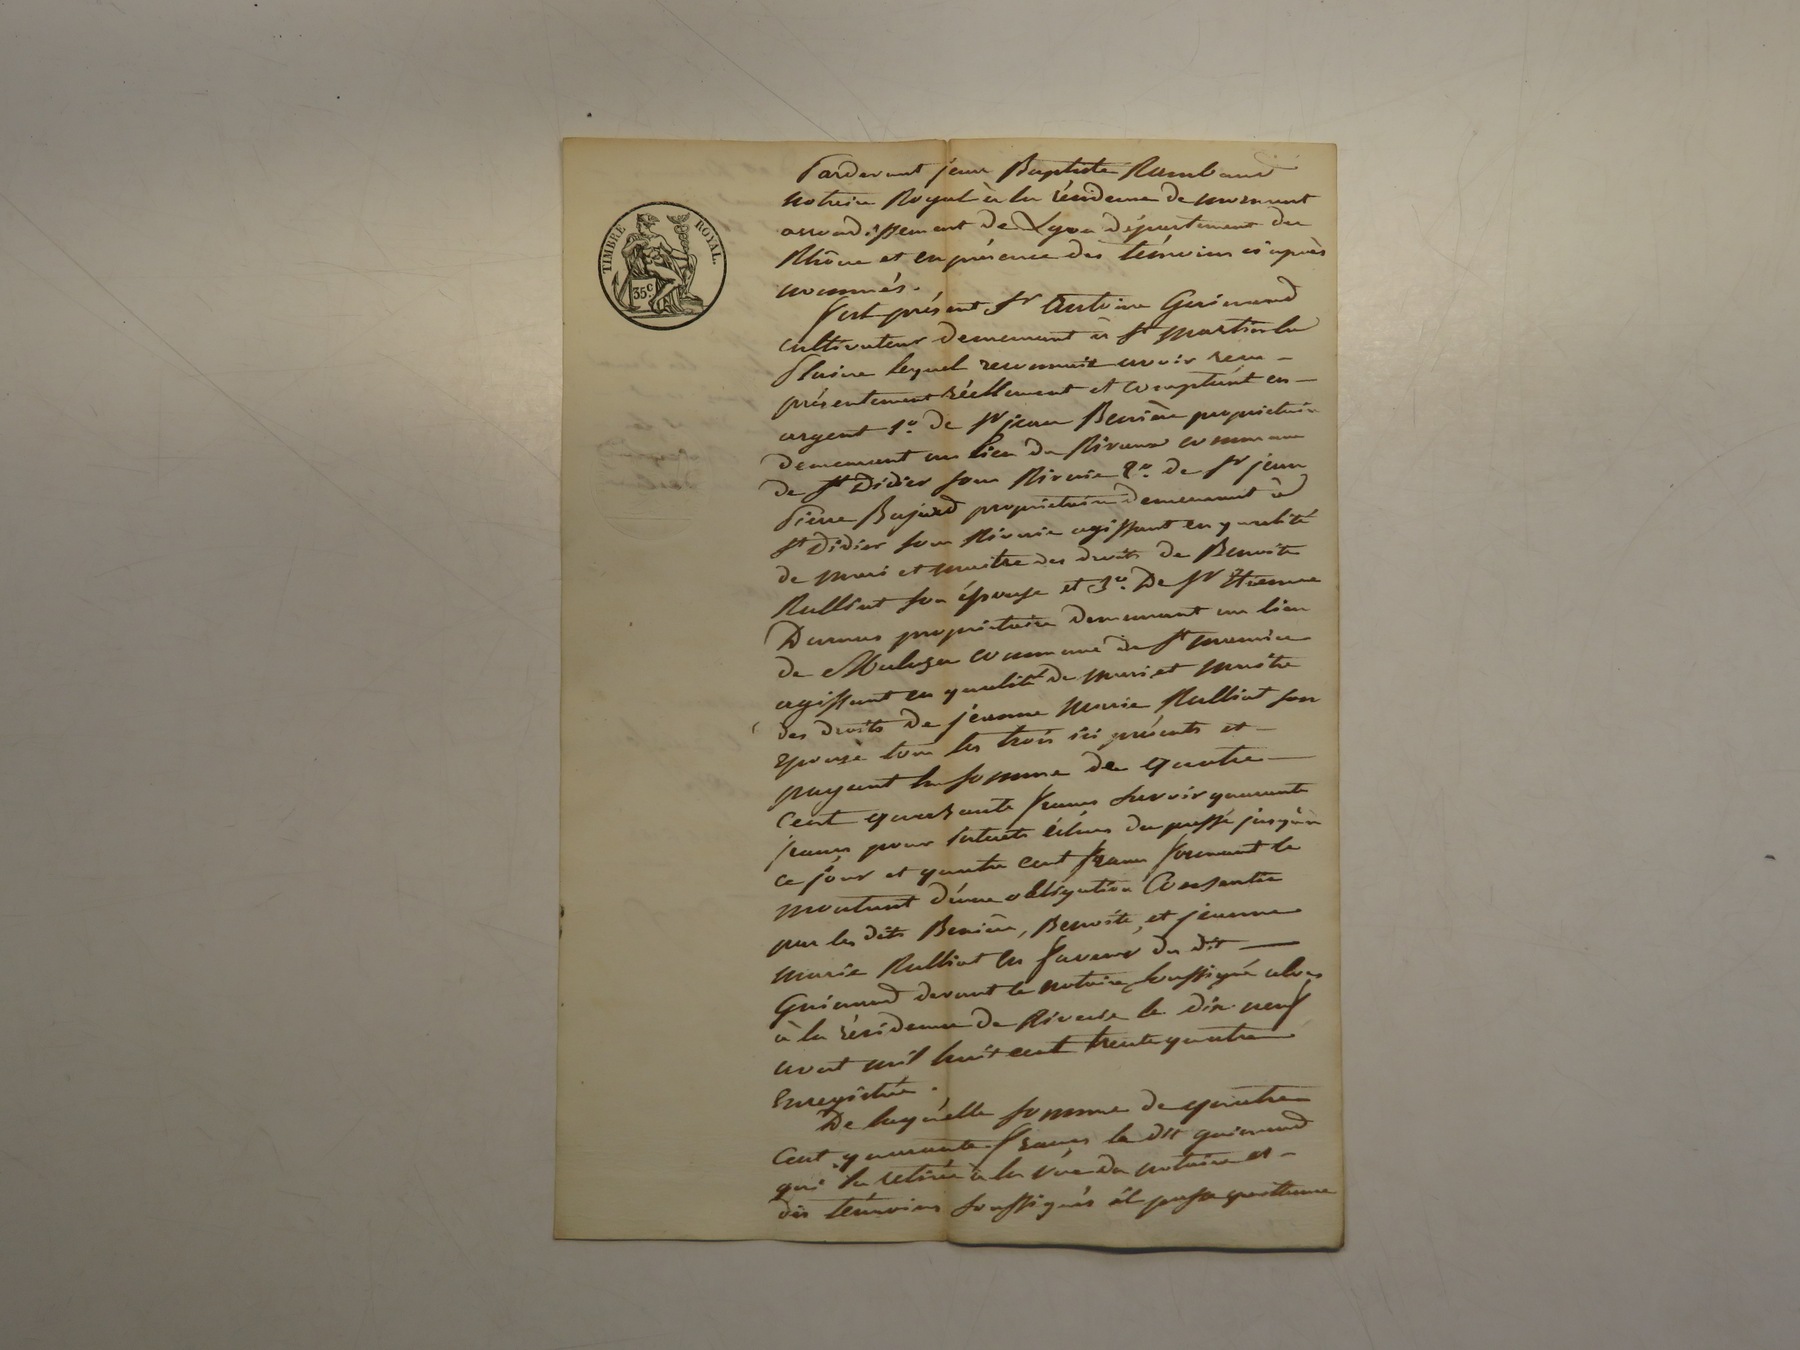 TIMBRE ROYAL.
35c
Pardevant jean Baptiste Rambaud
notaire Royal à la résidence de mornant
arrondissement de Lyon département du
Rhône et en présence des témoins ci après
nommés.
fut présent Sr Antoine Guinand
cultivateur demeurant à St martin la
Plaine lequel reconnait avoir reçu -
présentement réellement et comptant en -
argent 1o. de Sr jean Benière propriétaire
demeurant au lieu du Rivaux commune
de St Didier sous Riverie 2o. de Sr jean
Pierre Bajard propriétaire demeurant à
St Didier sous Riverie agissant en qualité
de mari et maitre des droits de Benoite
Rulliat son épouse et 3o. De Sr Etienne
Dumas propriétaire demeurant au lieu
de commune de St maurice
agissant en qualité de mari et maitre
des droits de jeanne Marie Rulliat son
epouse tous les trois ici présents et -
payant la somme de quatre -
cent quarante francs savoir quarante
francs pour intérêts échus du passé jusqu'à
ce jour et quatre cent francs formant le
montant d'une obligation Consentie
par les dits Benière, Benoite, et jeanne
marie Rulliat en faveur du dit —
Guinand devant le notaire soussigné alors
à la résidence de Riverie le dix neuf
avout mil huit cent trente quatre
Enregistrée.
De laquelle somme de quatre
Cent quarante francs le dit guinand
qui l'a retirée à la vue du notaire et -
des témoins soussignés il passe quittance